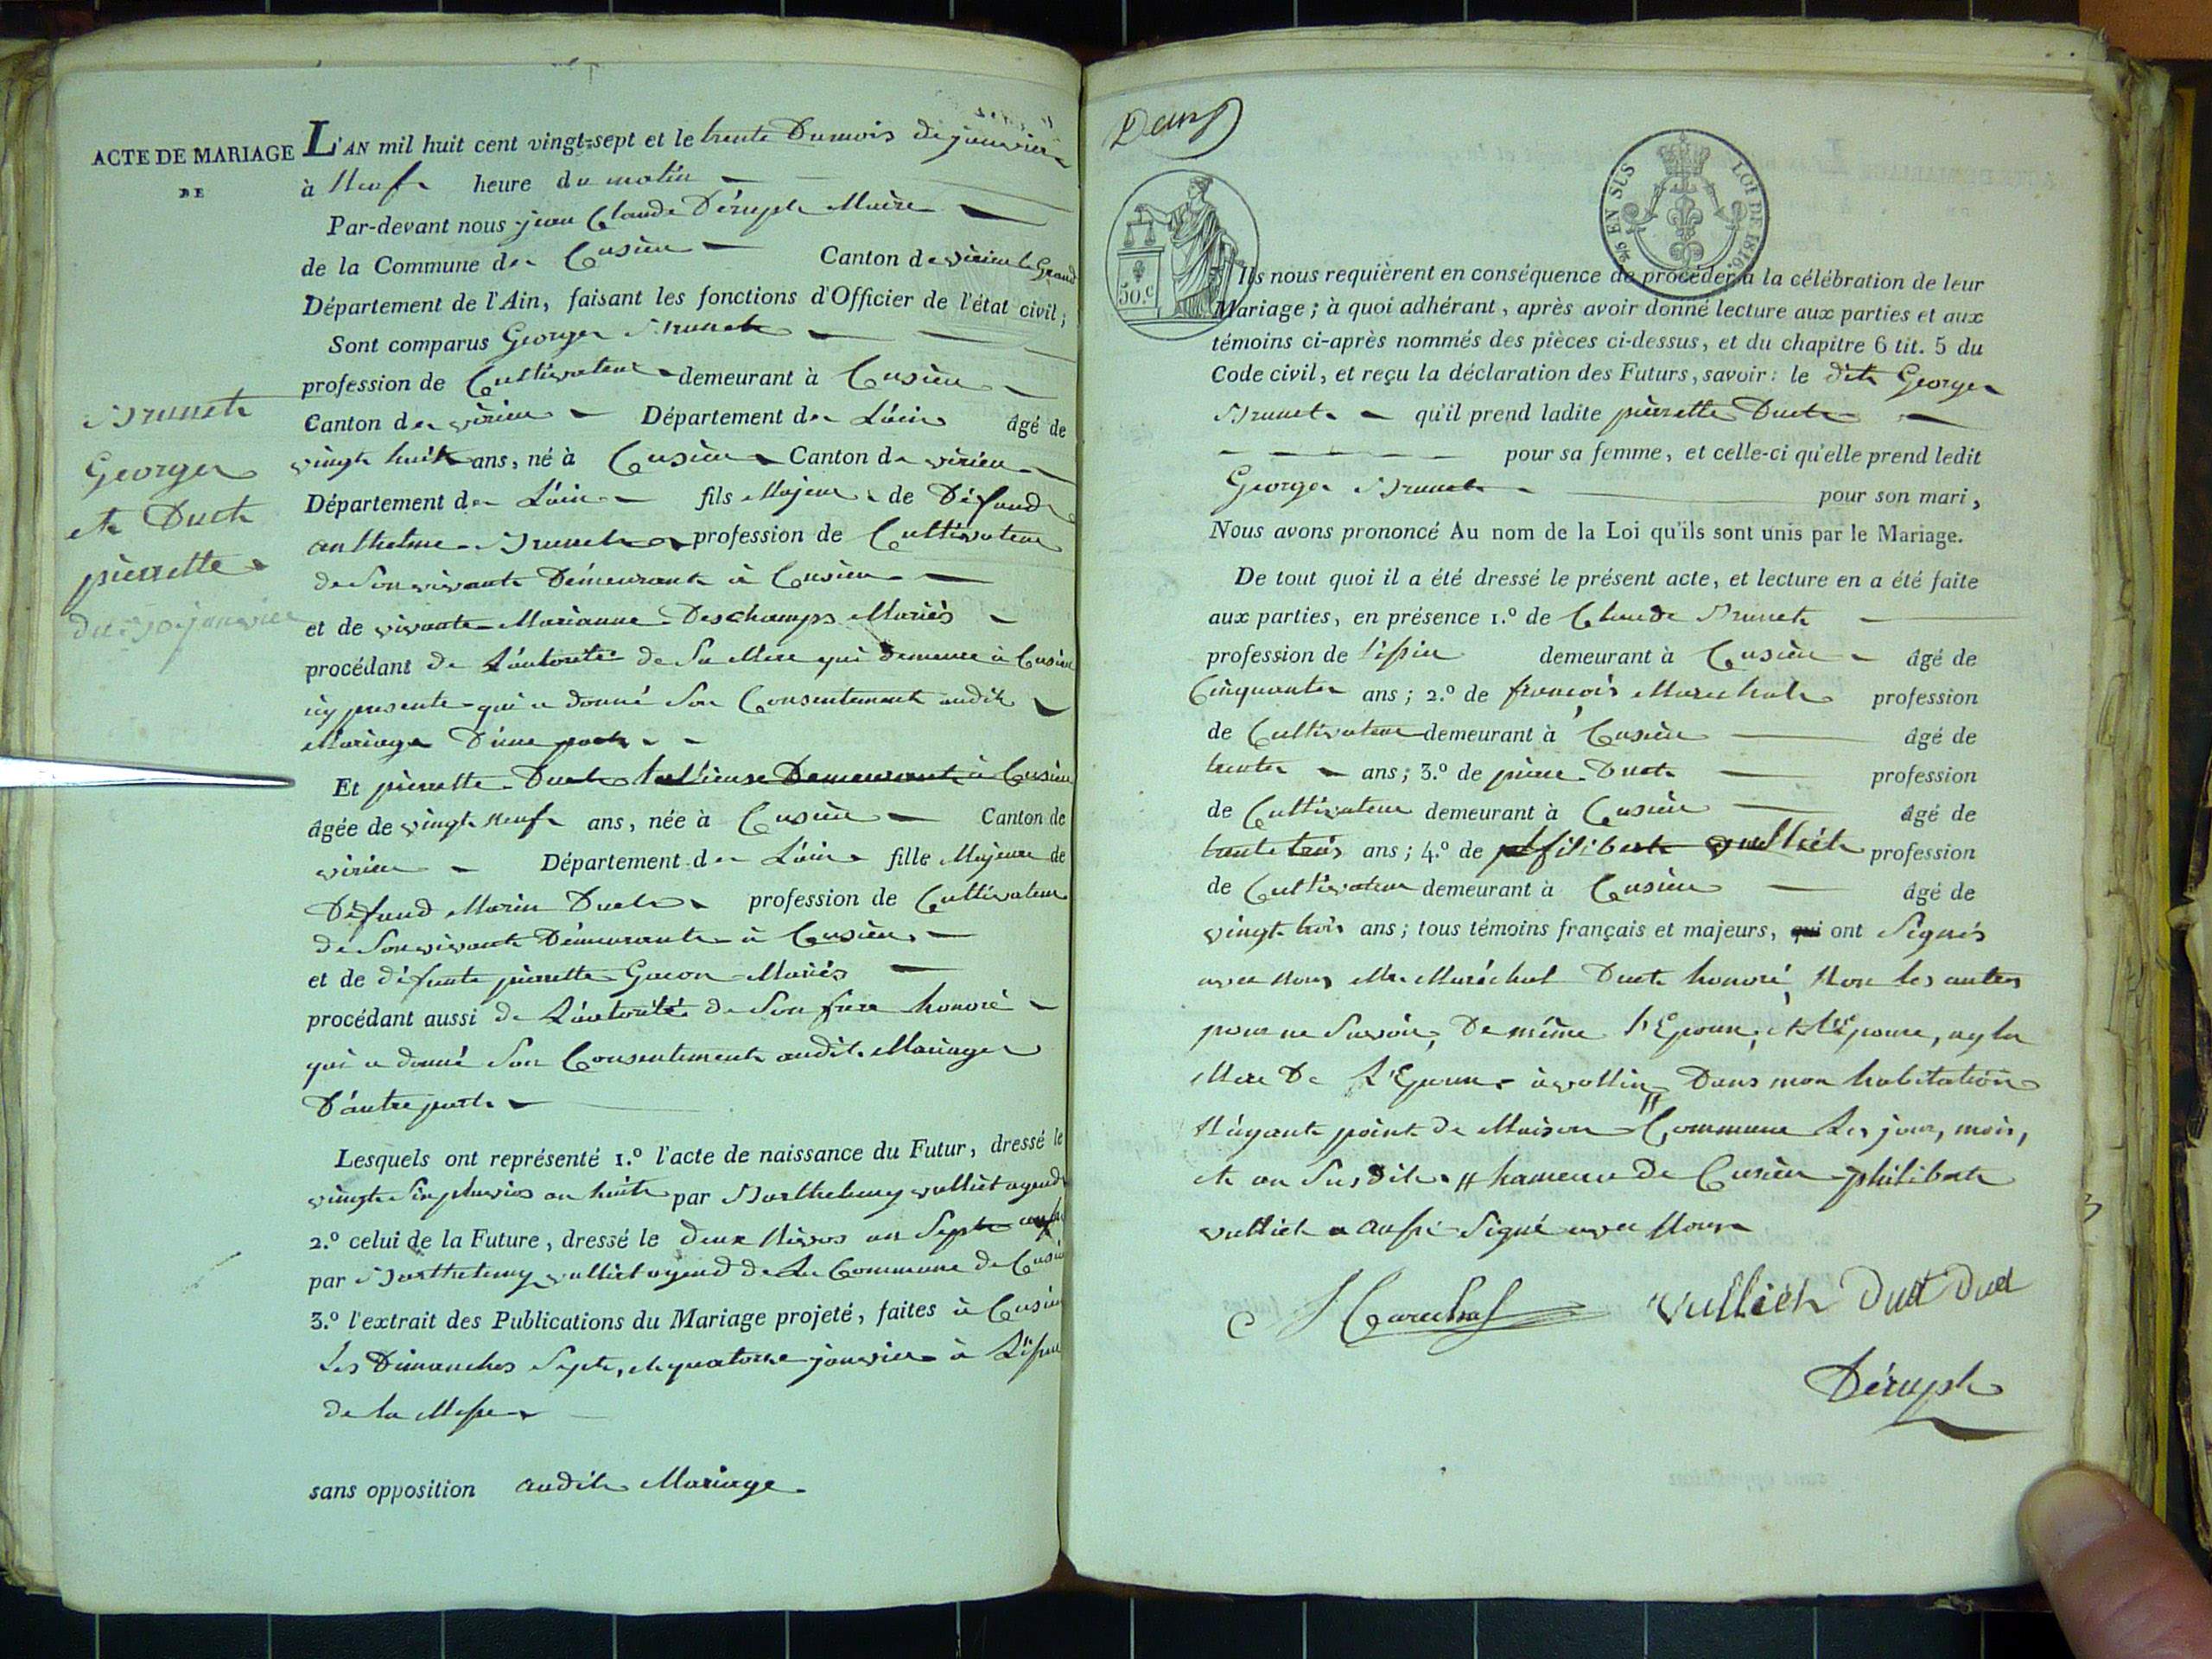 ACTE DE MARIAGE
DE
Brunet
George
et Duet
pierrette
du 30 janvier
L'AN mil huit cent vingt-sept et le trente Du mois de janvier
à Neuf heure du matin
Par-devant nous jean Claude Déruph Maire
de la Commune de Cusieu Canton de virieu le Grand
Département de l'Ain, faisant les fonctions d'Officier de l'état civil;
Sont comparus George Brunet
profession de Cultivateur demeurant à Cusieu
Canton de virieu Département de L'ain âgé de
vingt huit ans, né à Cusieu Canton de virieu
Département de L'ain fils Majeur de Défund
anthelme Brunet profession de Cultivateur
de Son vivant Démeurant à Cusieu
et de vivante Marianne Deschamps Mariés
procédant de L'autorité de Sa Mere qui Demeure à Cusieu
icy presente qui a donné Son Consentement audit
Mariage D'une part
Et pierrette Duet tallieuse Demeurant à Cusieu
âgée de vingt neuf ans, née à Cusieu Canton de
virieu Département de L'ain fille Majeure de
Défund Marin Duet profession de Cultivateur
de Son vivant Démeurant à Cusieu
et de défunte pierrette Gacon Mariés
procédant aussi de L'autorité de Son frere honoré
qui a donné Son Consentement audit Mariage
D'autre part
Lesquels ont représenté 1.º l'acte de naissance du Futur, dressé le
vingt Six pluvios an huit par Barthelemy vulliet agend
2.º celui de la Future, dressé le deux Nivos an Sept
par Barthelemy vulliet agend de La Commune de Cusieu
3.º l'extrait des Publications du Mariage projeté, faites à Cusieu
Les Dimanches Sept, et quatorze janvier à L'issue
de la Messe
sans opposition audit Mariage
Deux
50.C
EN SUS
LOI DE 1816.
Ils nous requièrent en conséquence de procéder à la célébration de leur
Mariage; à quoi adhérant, après avoir donné lecture aux parties et aux
témoins ci-après nommés des pièces ci-dessus, et du chapitre 6 tit. 5 du
Code civil, et reçu la déclaration des Futurs, savoir: le dit George
Brunet qu'il prend ladite pierrette Duet
pour sa femme, et celle-ci qu'elle prend ledit
George Brunet pour son mari,
Nous avons prononcé Au nom de la Loi qu'ils sont unis par le Mariage.
De tout quoi il a été dressé le présent acte, et lecture en a été faite
aux parties, en présence 1.º de Claude Brunet
profession de tissier demeurant à Cusieu âgé de
Cinquante ans; 2.º de françois Marechal profession
de Cultivateur demeurant à Cusieu âgé de
trente ans; 3.º de pierre Duet profession
de Cultivateur demeurant à Cusieu âgé de
trente trois ans; 4.º de filibert vulliet profession
de Cultivateur demeurant à Cusieu âgé de
vingt trois ans; tous témoins français et majeurs, qui ont Signés
avec nous Mr Maréchal Duet honoré, Non les autres
pour ne Savoir, De même l'Epoux, et l'Epouse, ny la
Mere De L'Epoux à vollien Dans mon habitation
N'ayant point de Maison Commune Les jour, mois,
et an Susdit. // hameau de Cusieu philibert
vulliet a aussi Signé avec Nous
Marechal vullieh Duet Duet
Déruph